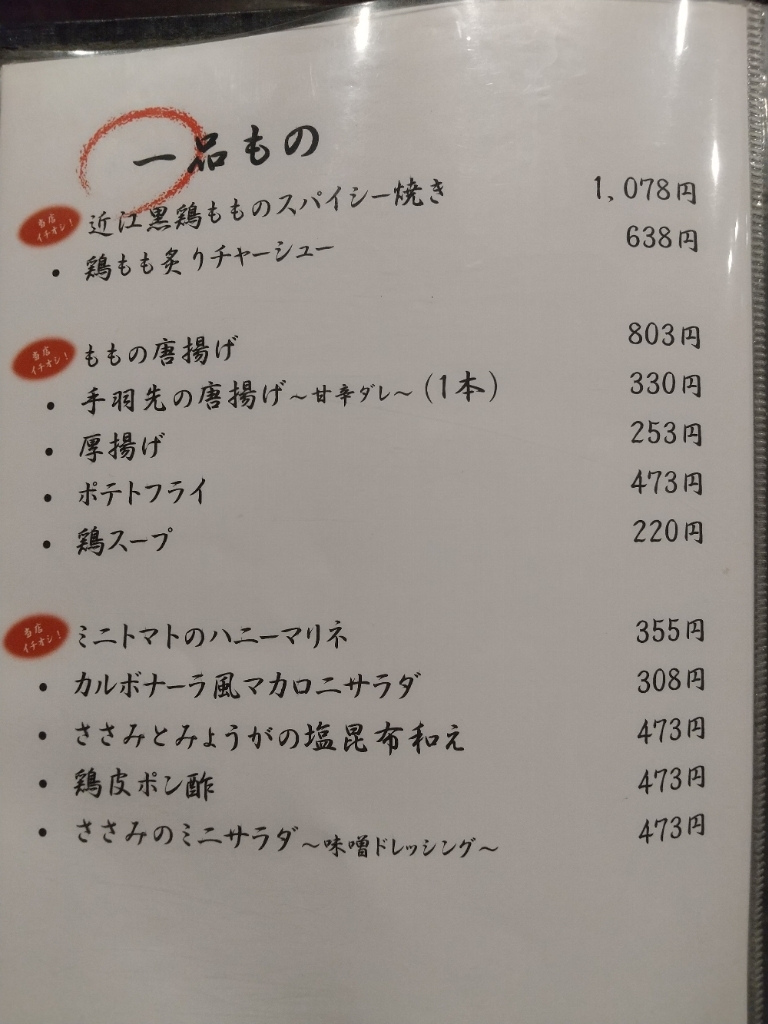 一品もの
当店イチオシ! 近江黒鶏もものスパイシー焼き 1,078円
・ 鶏もも炙りチャーシュー 638円
当店イチオシ! ももの唐揚げ 803円
・ 手羽先の唐揚げ～甘辛ダレ～(1本) 330円
・ 厚揚げ 253円
・ ポテトフライ 473円
・ 鶏スープ 220円
当店イチオシ! ミニトマトのハニーマリネ 355円
・ カルボナーラ風マカロニサラダ 308円
・ ささみとみょうがの塩昆布和え 473円
・ 鶏皮ポン酢 473円
・ ささみのミニサラダ～味噌ドレッシング～ 473円